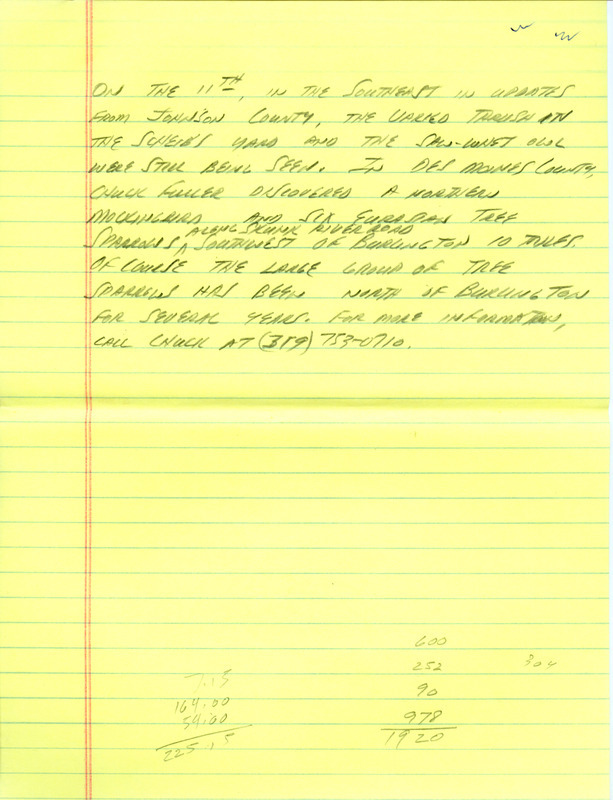 ON THE 11TH, IN THE SOUTHEAST IN UPDATES
FROM JOHNSON COUNTY, THE VARIED THRUSH IN
THE SCHEIB'S YARD AND THE SAW-WHET OWL
WERE STILL BEING SEEN. IN DES MOINES COUNTY,
CHUCK FULLER DISCOVERED A NORTHERN
MOCKINGBIRD AND SIX EUROPEAN TREE
ALONG SKUNK RIVER ROAD
SPARROWS, ^ SOUTHWEST OF BURLINGTON 10 MILES.
OF COURSE THE LARGE GROUP OF TREE
SPARROWS HAS BEEN NORTH OF BURLINGTON
FOR SEVERAL YEARS. FOR MORE INFORMATION,
CALL CHUCK AT (319) 753-0710.
600
252 304
7.15
90
164.00
54.00
978
225.15
1920